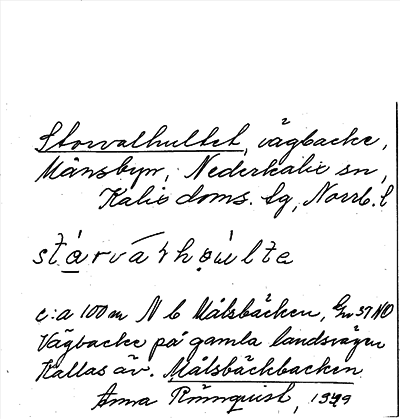 Storvalhultet, vägbacke,
Månsbyn, Nederkalix sn,
Kalix doms. lg, Norrb. l
c:a 100 m N b Målsbäcken, Gm 37 NO
Vägbacke på gamla landsvägen
Kallas äv. Målsbäckbacken
Anna Rönnquist, 1949